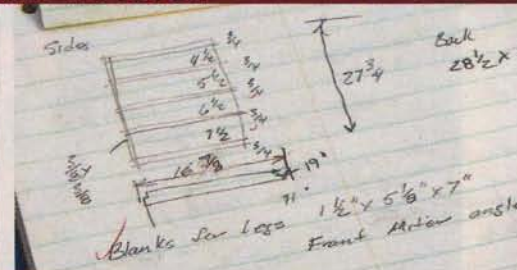 Sides
3/4
4 1/2
3/4
5 1/2
3/4
6 1/2
3/4
7 1/2
3/4
16 7/8
19°
27 3/4
Back
28 1/2 x
Blanks for Legs 1 1/2" x 5 1/8" x 7"
Front Miter angle